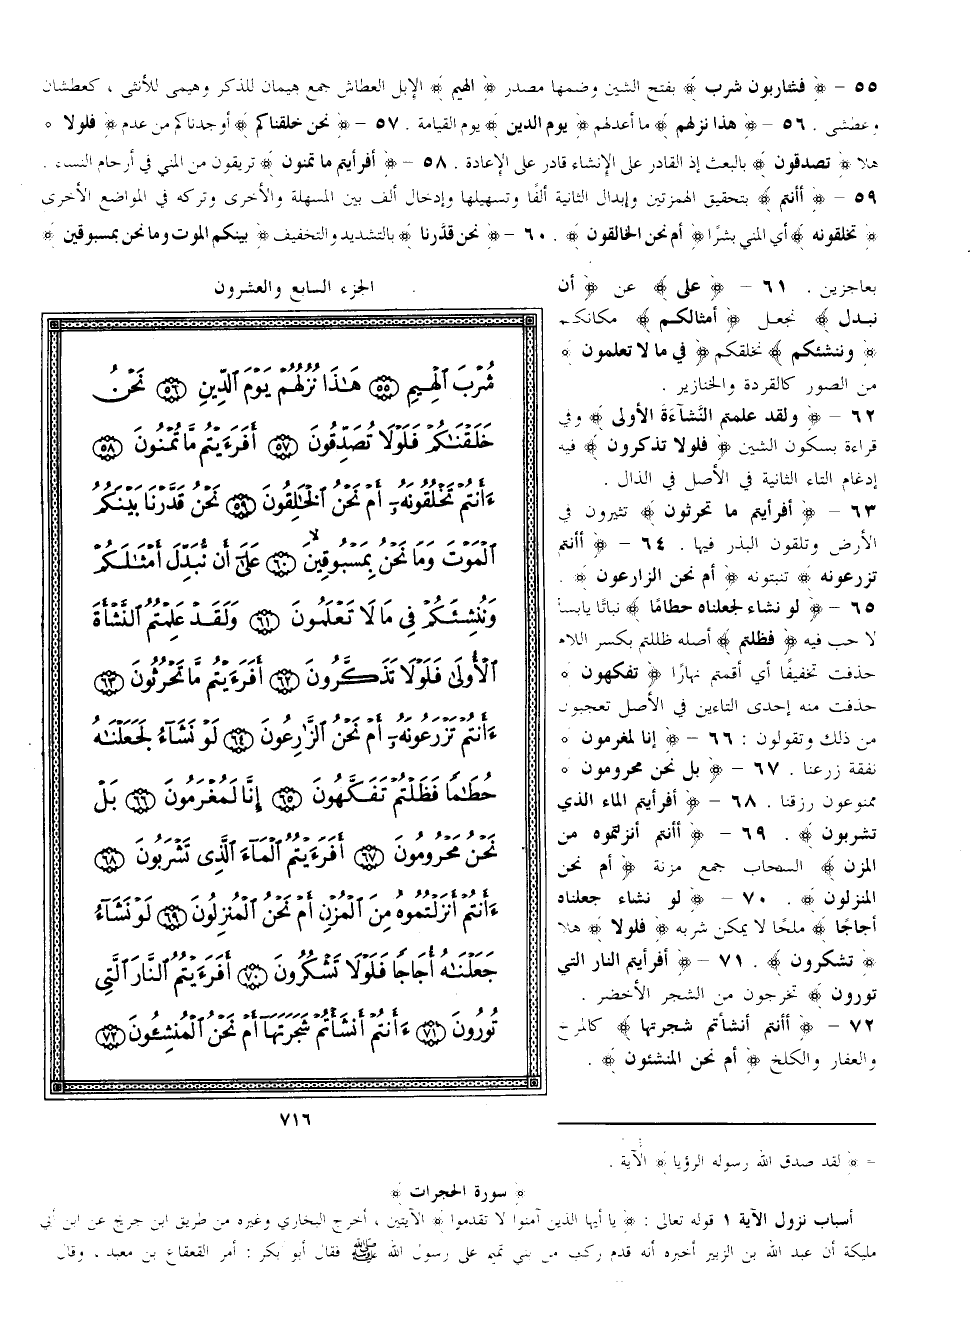 ٥٥ – ﴿ فشاربون شرب ﴾ بفتح الشين وضمها مصدر ﴿ الهيم ﴾ الإبل العطاش جمع هيمان للذكر وهيمى للأنثى ، كعطشان
وعطشى . ٥٦ – ﴿ هذا نزلهم ﴾ ما أعدلهم ﴿ يوم الدين ﴾ يوم القيامة . ٥٧ – ﴿ نحن خلقناكم ﴾ أوجدناكم من عدم ﴿ فلولا ﴾
هلا ﴿ تصدقون ﴾ بالبعث إذ القادر على الإنشاء قادر على الإعادة . ٥٨ – ﴿ أفرأيتم ما تمنون ﴾ تريقون من المني في أرحام النساء .
٥٩ – ﴿ أأنتم ﴾ بتحقيق الهمزتين وإبدال الثانية ألفًا وتسهيلها وإدخال ألف بين المسهلة والأخرى وتركه في المواضع الأخرى
﴿ تخلقونه ﴾ أي المني بشرًا ﴿ أم نحن الخالقون ﴾ . ٦٠ – ﴿ نحن قدَّرنا ﴾ بالتشديد والتخفيف ﴿ بينكم الموت وما نحن بمسبوقين ﴾
بعاجزين . ٦١ – ﴿ على ﴾ عن ﴿ أن
نبدل ﴾ نجعل ﴿ أمثالكم ﴾ مكانكم
﴿ وننشئكم ﴾ نخلقكم ﴿ في ما لا تعلمون ﴾
من الصور كالقردة والخنازير .
٦٢ – ﴿ ولقد علمتم النَّشآءَةَ الأولى ﴾ وفي
قراءة بسكون الشين ﴿ فلولا تذكرون ﴾ فيه
إدغام التاء الثانية في الأصل في الذال .
٦٣ – ﴿ أفرأيتم ما تحرثون ﴾ تثيرون في
الأرض وتلقون البذر فيها . ٦٤ – ﴿ أأنتم
تزرعونه ﴾ تنبتونه ﴿ أم نحن الزارعون ﴾ .
٦٥ – ﴿ لو نشاء لجعلناه حطامًا ﴾ نباتًا يابسًا
لا حب فيه ﴿ فظلتم ﴾ أصله ظللتم بكسر اللام
حذفت تخفيفًا أي أقمتم نهارًا ﴿ تفكهون ﴾
حذفت منه إحدى التاءين في الأصل تعجبون
من ذلك وتقولون : ٦٦ – ﴿ إنا لمغرمون ﴾
نفقة زرعنا . ٦٧ – ﴿ بل نحن محرومون ﴾
ممنوعون رزقنا . ٦٨ – ﴿ أفرأيتم الماء الذي
تشربون ﴾ . ٦٩ – ﴿ أأنتم أنزلتموه من
المزن ﴾ السحاب جمع مزنة ﴿ أم نحن
المنزلون ﴾ . ٧٠ – ﴿ لو نشاء جعلناه
أجاجًا ﴾ ملحًا لا يمكن شربه ﴿ فلولا ﴾ هلا
﴿ تشكرون ﴾ . ٧١ – ﴿ أفرأيتم النار التي
تورون ﴾ تخرجون من الشجر الأخضر .
٧٢ – ﴿ أأنتم أنشأتم شجرتها ﴾ كالمرخ
والعفار والكلخ ﴿ أم نحن المنشئون ﴾ .
الجزء السابع والعشرون
شُرْبَ ٱلْهِيمِ ٥٥ هَٰذَا نُزُلُهُمْ يَوْمَ ٱلدِّينِ ٥٦ نَحْنُ
خَلَقْنَٰكُمْ فَلَوْلَا تُصَدِّقُونَ ٥٧ أَفَرَءَيْتُم مَّا تُمْنُونَ ٥٨
ءَأَنتُمْ تَخْلُقُونَهُۥٓ أَمْ نَحْنُ ٱلْخَٰلِقُونَ ٥٩ نَحْنُ قَدَّرْنَا بَيْنَكُمُ
ٱلْمَوْتَ وَمَا نَحْنُ بِمَسْبُوقِينَ ٦٠ عَلَىٰٓ أَن نُّبَدِّلَ أَمْثَٰلَكُمْ
وَنُنشِئَكُمْ فِى مَا لَا تَعْلَمُونَ ٦١ وَلَقَدْ عَلِمْتُمُ ٱلنَّشْأَةَ
ٱلْأُولَىٰ فَلَوْلَا تَذَكَّرُونَ ٦٢ أَفَرَءَيْتُم مَّا تَحْرُثُونَ ٦٣
ءَأَنتُمْ تَزْرَعُونَهُۥٓ أَمْ نَحْنُ ٱلزَّٰرِعُونَ ٦٤ لَوْ نَشَآءُ لَجَعَلْنَٰهُ
حُطَٰمًا فَظَلْتُمْ تَفَكَّهُونَ ٦٥ إِنَّا لَمُغْرَمُونَ ٦٦ بَلْ
نَحْنُ مَحْرُومُونَ ٦٧ أَفَرَءَيْتُمُ ٱلْمَآءَ ٱلَّذِى تَشْرَبُونَ ٦٨
ءَأَنتُمْ أَنزَلْتُمُوهُ مِنَ ٱلْمُزْنِ أَمْ نَحْنُ ٱلْمُنزِلُونَ ٦٩ لَوْ نَشَآءُ
جَعَلْنَٰهُ أُجَاجًا فَلَوْلَا تَشْكُرُونَ ٧٠ أَفَرَءَيْتُمُ ٱلنَّارَ ٱلَّتِى
تُورُونَ ٧١ ءَأَنتُمْ أَنشَأْتُمْ شَجَرَتَهَآ أَمْ نَحْنُ ٱلْمُنشِـُٔونَ ٧٢
٧١٦
= ﴿ لقد صدق الله رسوله الرؤيا ﴾ الآية .
﴿ سورة الحجرات ﴾
أسباب نزول الآية ١ قوله تعالى : ﴿ يا أيها الذين آمنوا لا تقدموا ﴾ الآيتين ، أخرج البخاري وغيره من طريق ابن جريج عن ابن أبي
مليكة أن عبد الله بن الزبير أخبره أنه قدم ركب من بني تميم على رسول الله ﷺ فقال أبو بكر : أمر القعقاع بن معبد ، وقال